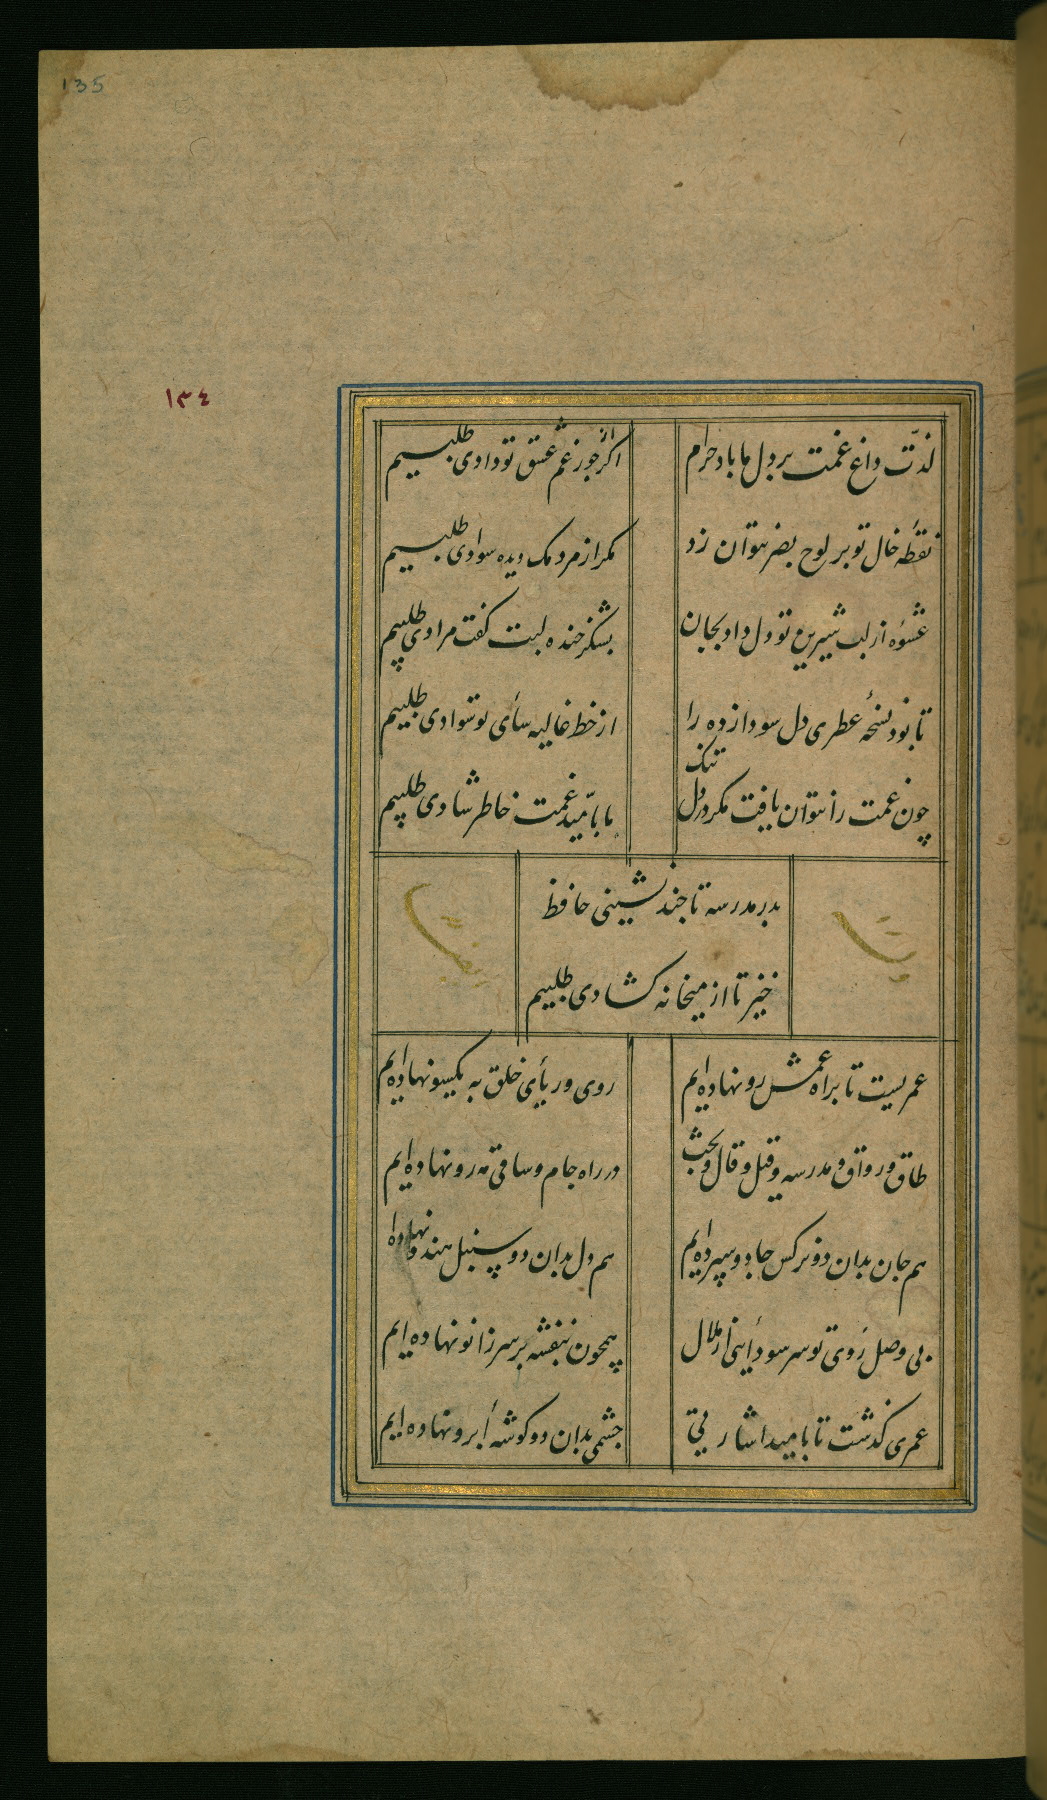 135
١٣٤
لذّت داغ غمت بر دل ما باد حرام
اکر از جور غم عشق تو دادی طلبیم
نقطه خال تو بر لوح بصر نتوان زد
مکر از مردمک دیده سوادی طلبیم
عشوه از لب شیرین تو دل داد بجان
بشکرخنده لبت کفت مرادی طلبیم
تا بود نسخهٔ عطری دل سودازده را
از خط غالیه سای تو سوادی طلبیم
چون غمت را نتوان یافت مکر در دل تنک
ما بامّید غمت خاطر شادی طلبیم
بدر مدرسه تا چند نشینی حافظ
خیز تا از میخانه کشادی طلبیم
عمریست تا براه غمش رو نهاده ایم
روی و ریای خلق به یکسو نهاده ایم
طاق و رواق و مدرسه و قیل و قال و بحث
در راه جام و ساقی مه رو نهاده ایم
هم جان بدان دو نرکس جادو سپرده ایم
هم دل بدان دو سنبل هندو نهاده
بی وصل روی تو سر سودایی از ملال
همچون بنفشه بر سر زانو نهاده ایم
عمری کذشت تا بامید اشارتی
چشمی بدان دو کوشه ابرو نهاده ایم